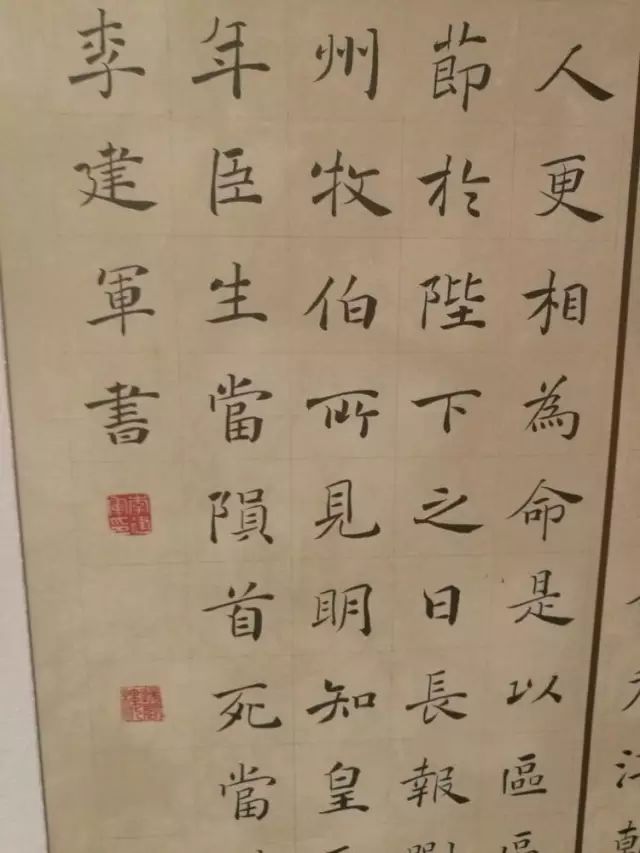 人更相為命是以區區
節於陛下之日長報劉
州牧伯所見明知皇
年臣生當隕首死當
李建軍書
李建軍印